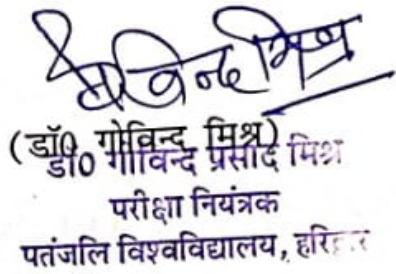 गोविन्द मिश्र
(डॉ0 गोविन्द मिश्र)
डॉ0 गोविन्द प्रसाद मिश्र
परीक्षा नियंत्रक
पतंजलि विश्वविद्यालय, हरिद्वार